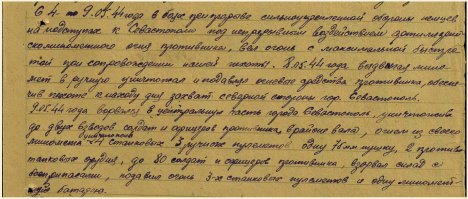 С 4. по 9.05.44 года в боях при прорыве сильноукрепленной обороны немцев
на подступах к Севастополю под непрерывным воздействием артиллерий-
ско-минометного огня противника, вел огонь с максимальной быстро-
той при сопровождении нашей пехоты. 8.05.44 года выдвигая мино-
мет в уничтожая и подавляя огневые средства противника, обеспе-
чив пехоте к исходу дня захват северной стороны гор. Севастополь.
9.05.44 года ворвался в центральную часть города Севастополь, уничтожив
до двух взводов солдат и офицеров противника, в районе вала, огнем из своего
миномета уничтожил 4 станковых 3 ручных пулеметов одну 75мм пушку, 2 противо-
танковых орудия, до 80 солдат и офицеров противника, взорвал склад с
боеприпасами, подавил огонь 3-х станковых пулеметов и одну минометную
батарею.